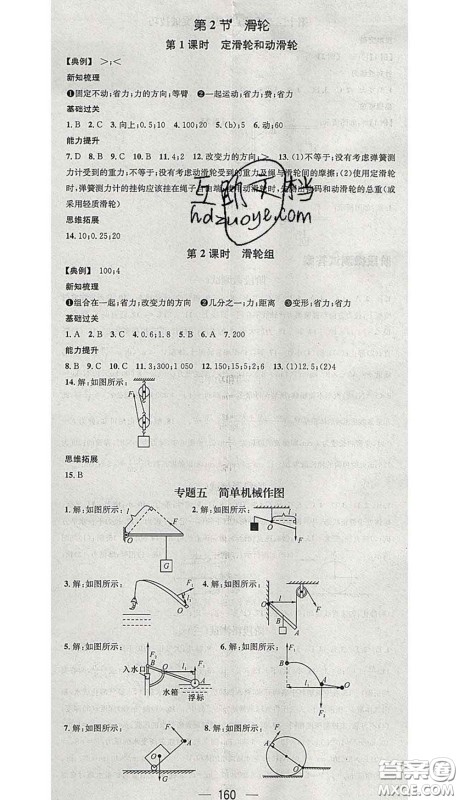 第2节 滑轮
第1课时 定滑轮和动滑轮
【典例】 >;<
新知梳理
❶固定不动;省力;力的方向;等臂 ❷一起运动;省力;费;力
基础过关
1. B 2. C 3. 向上;0.5;10 4. 100;20 5. (b);5 6. 动;60
能力提升
7. D 8. B 9. C 10. B 11. 4;2 12. 改变力的方向;> 13. (1)不等于;没有考虑弹簧测
力计受到的重力;不等于;没有考虑动滑轮受到的重力及绳与滑轮间的摩擦;(2)使用定滑
轮时,弹簧测力计的挂钩应该挂在绳子自由端 动滑轮时,先 出 码和动滑轮的总重(或
采用轻质滑轮)
思维拓展
14. 10;0.25;20
互助文档
hdzuoye.com
第2课时 滑轮组
【典例】 100;4
新知梳理
❶组合在一起;改变力的方向 ❷几分之一;力;距离 ❸变形;省力;省力
基础过关
1. A 2. B 3. C 4. 0.6;1.8 5. B 6. A 7. 200
能力提升
8. B 9. C 10. C 11. 3;300;1 050 12. 150;15;5;2;6 13. (1)12.5;(2)4
14. 解:如图所示:
F
思维拓展
15. B
专题五 简单机械作图
1. 解:如图所示: 2. 解:如图所示:
l F O G
O l F
3. 解:如图所示: 4. 解:如图所示:
l F O
O l A F
5. 解:如图所示: 6. 解:如图所示:
F₂ B O l₁ F₁ A 入水口 水箱 浮标
F₂ B O l₁ A F₁
7. 解:如图所示: 8. 解:如图所示:
F A O
F A O
160
答案圈
MXQE.COM